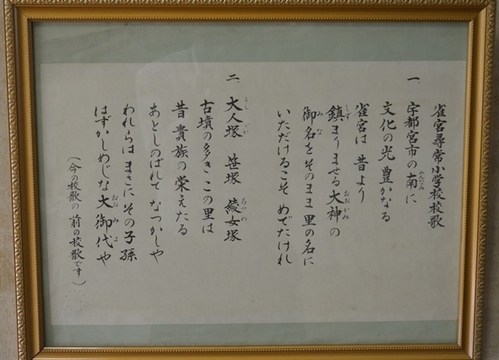 雀宮尋常小学校校歌
一 宇都宮市の南に
文化の光豊かなる
雀宮は昔より
鎮まりませる大神の
御名をそのまま里の名に
いただけるこそめでたけれ
二 大人塚 笹塚 綾女塚
古墳の多きこの里は
昔貴族の栄えたる
あとしのばれてなつかしや
われらはまさにその子孫
はずかしめじな大御代や
（今の校歌の前の校歌です）